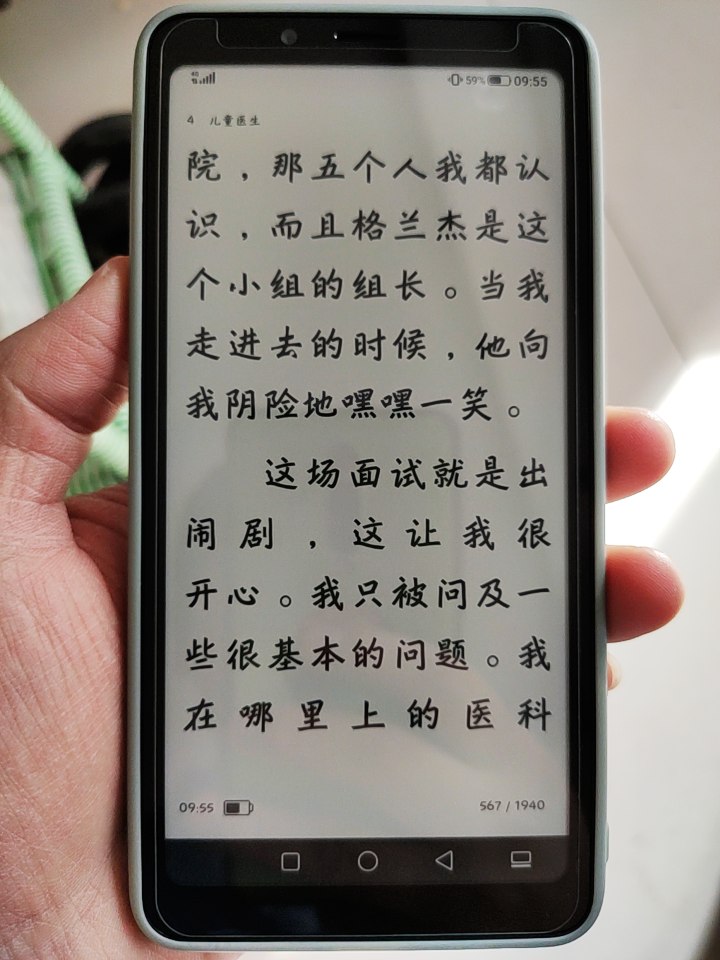 4G 59% 09:55
4 儿童医生
院，那五个人我都认
识，而且格兰杰是这
个小组的组长。当我
走进去的时候，他向
我阴险地嘿嘿一笑。
这场面试就是出
闹剧，这让我很
开心。我只被问及一
些很基本的问题。我
在哪里上的医科
09:55 567 / 1940